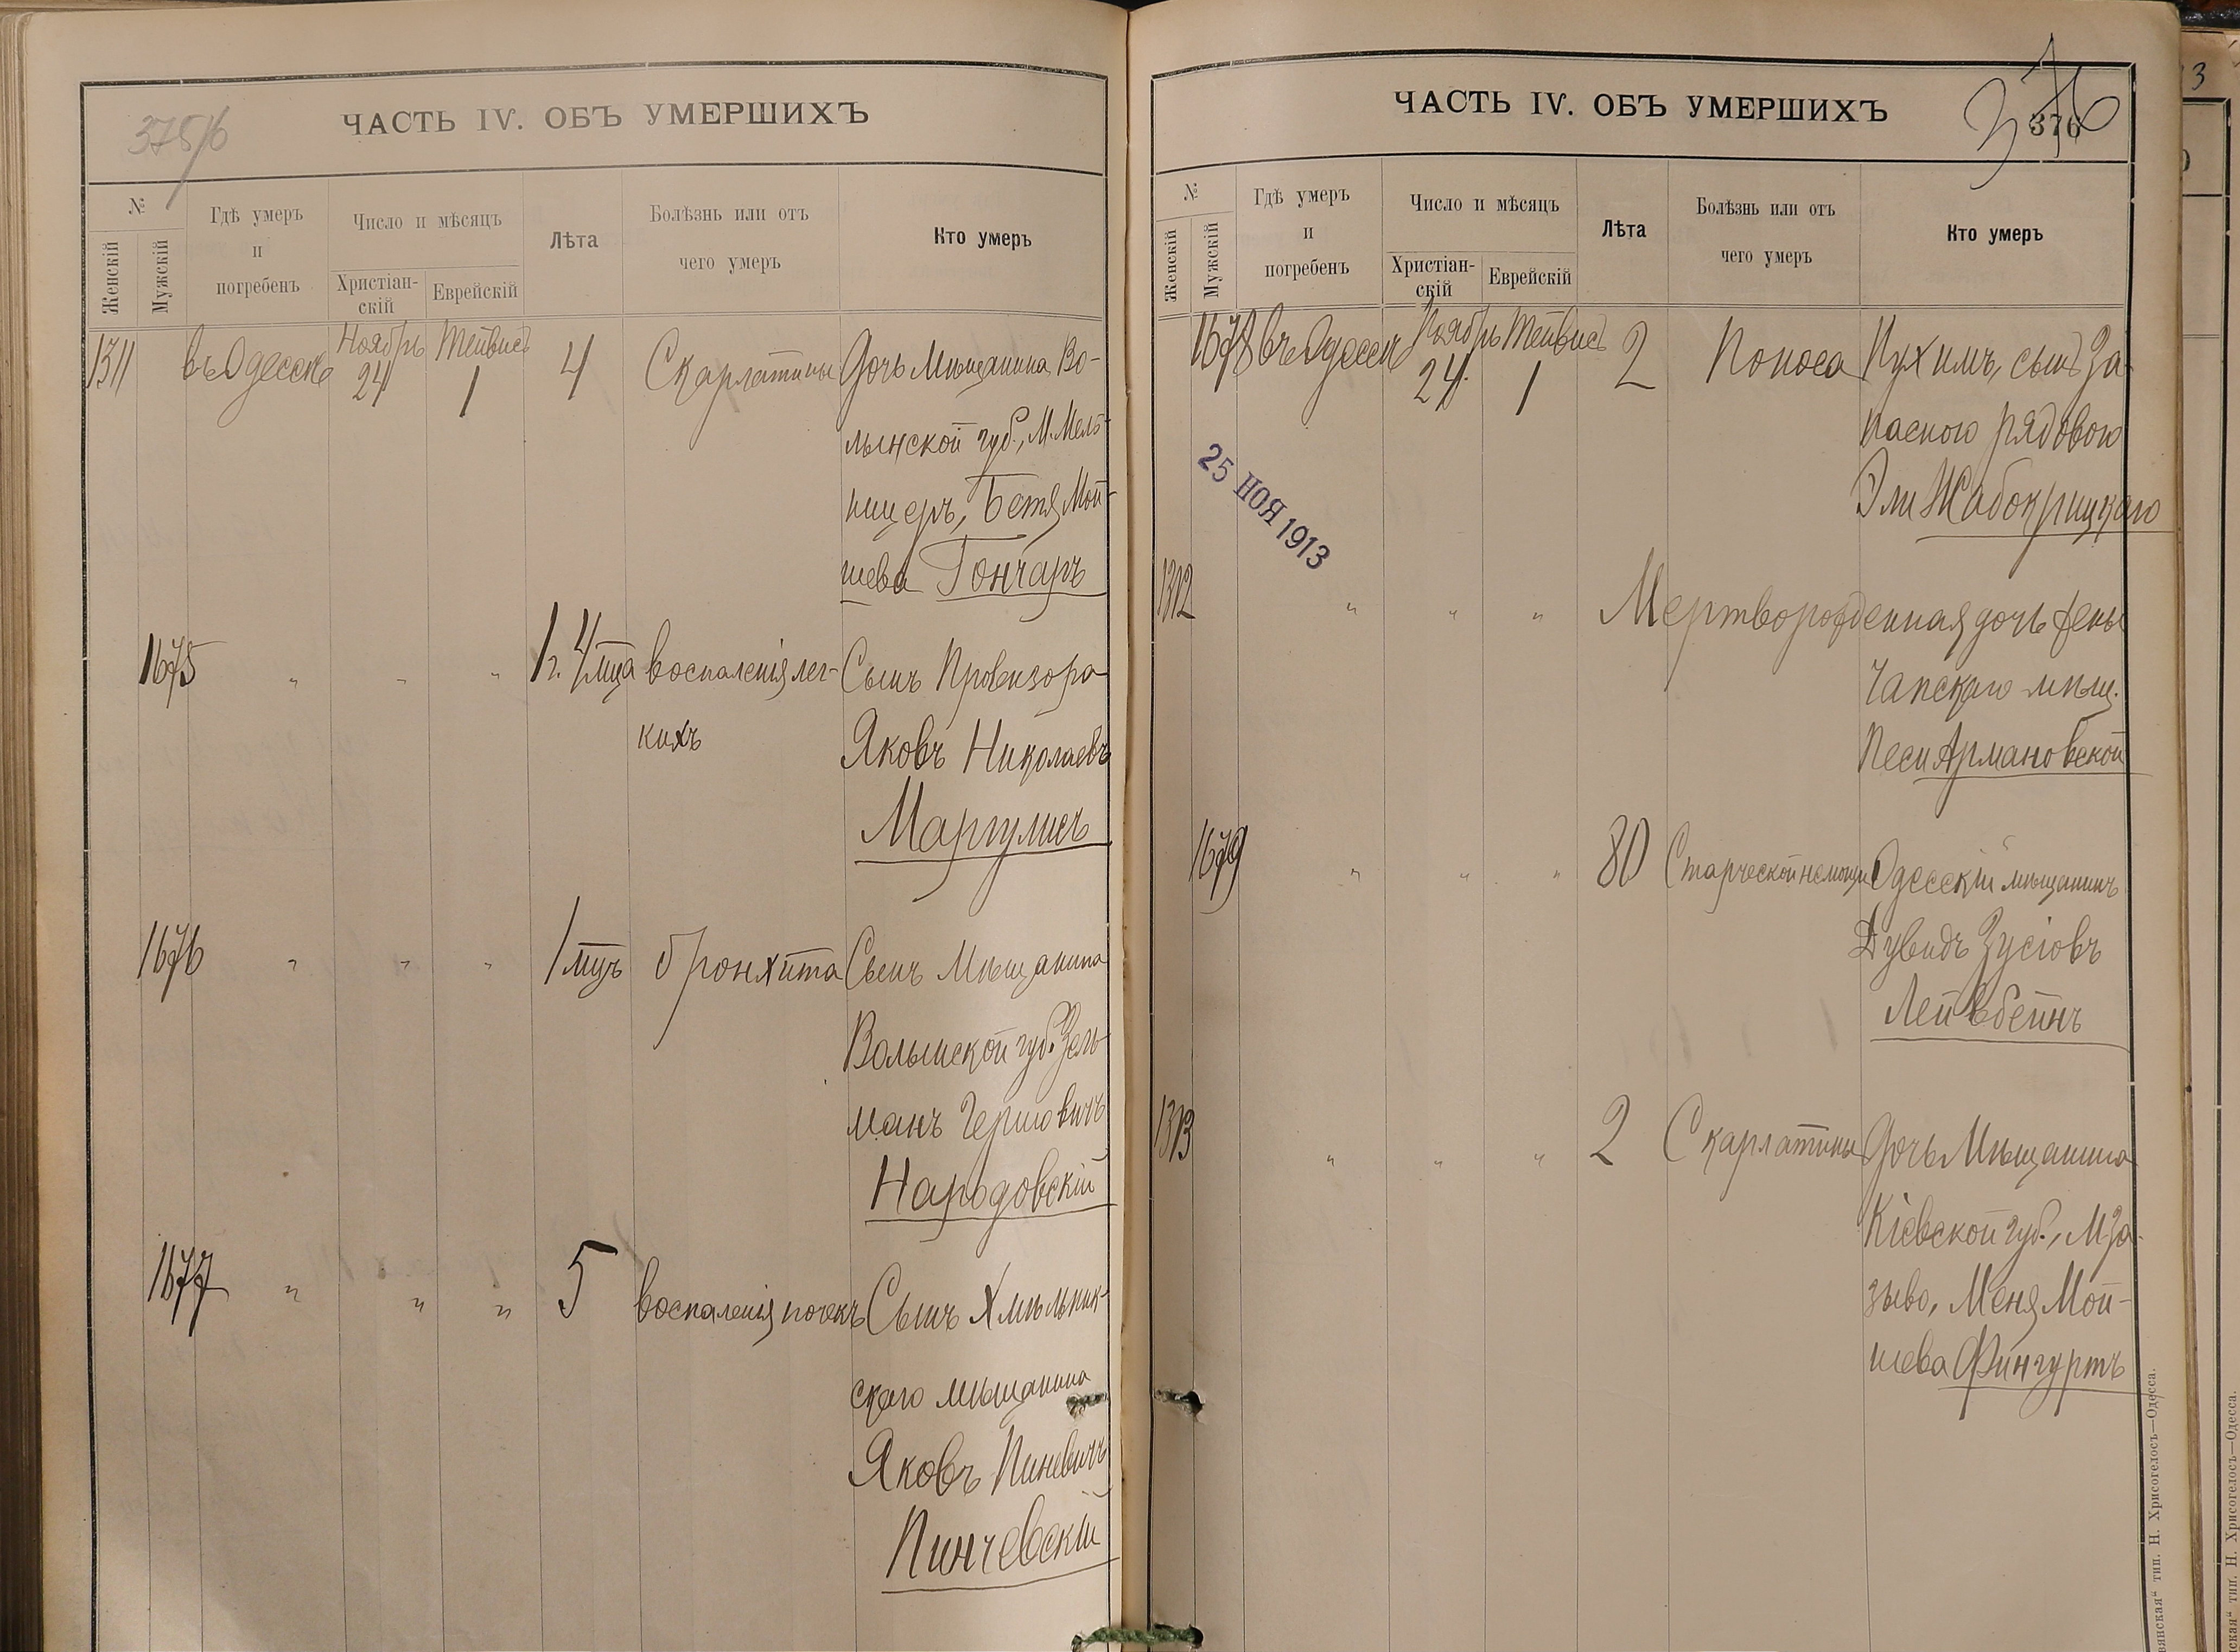 375/б
ЧАСТЬ IV. ОБЪ УМЕРШИХЪ
№
Женскій
Мужскій
Гдѣ умеръ
и
погребенъ
Число и мѣсяцъ
Христіан-
скій
Еврейскій
Лѣта
Болѣзнь или отъ
чего умеръ
Кто умеръ
1311 въ Одессѣ Ноябрь 24 Тейвисъ 1 4 Скарлатины Дочь Мѣщанина Во-
лынской губ., М. Мель-
ницеръ, Бетя Мой-
шева Гончаръ
1675 " " " 1 г. 4 мца воспаленія лег- Сынъ Провизора
кихъ Яковъ Николаевъ
Маргулисъ
1676 " " " 1 мцъ бронхита Сынъ Мѣщанина
Волынской губ. Зель-
манъ Гершовичъ
Народовскій
1677 " " " 5 воспаленія почекъ Сынъ Хмѣльник-
скаго мѣщанина
Яковъ Пиневичъ
Пинчевскій
ЧАСТЬ IV. ОБЪ УМЕРШИХЪ
376
376
№
Женскій
Мужскій
Гдѣ умеръ
и
погребенъ
Число и мѣсяцъ
Христіан-
скій
Еврейскій
Лѣта
Болѣзнь или отъ
чего умеръ
Кто умеръ
1678 въ Одессѣ Ноябрь 24 Тейвисъ 1 2 Поноса Нухимъ, сынъ За-
паснаго рядового
Эли Жабокрицкаго
25 НОЯ 1913
1312 " " " Мертворожденная дочь
Чапскаго мѣщ.
Песи Армановской
1679 " " " 80 Старческой немощи Одесскій мѣщанинъ
Дувидъ Зусіовъ
Лейвбейнъ
1313 " " " 2 Скарлатины Дочь Мѣщанина
Кіевской губ., М.
Меня Мой-
шева Фингуртъ
тип. Н. Хрисогелосъ—Одесса.
тип. Н. Хрисогелосъ—Одесса.